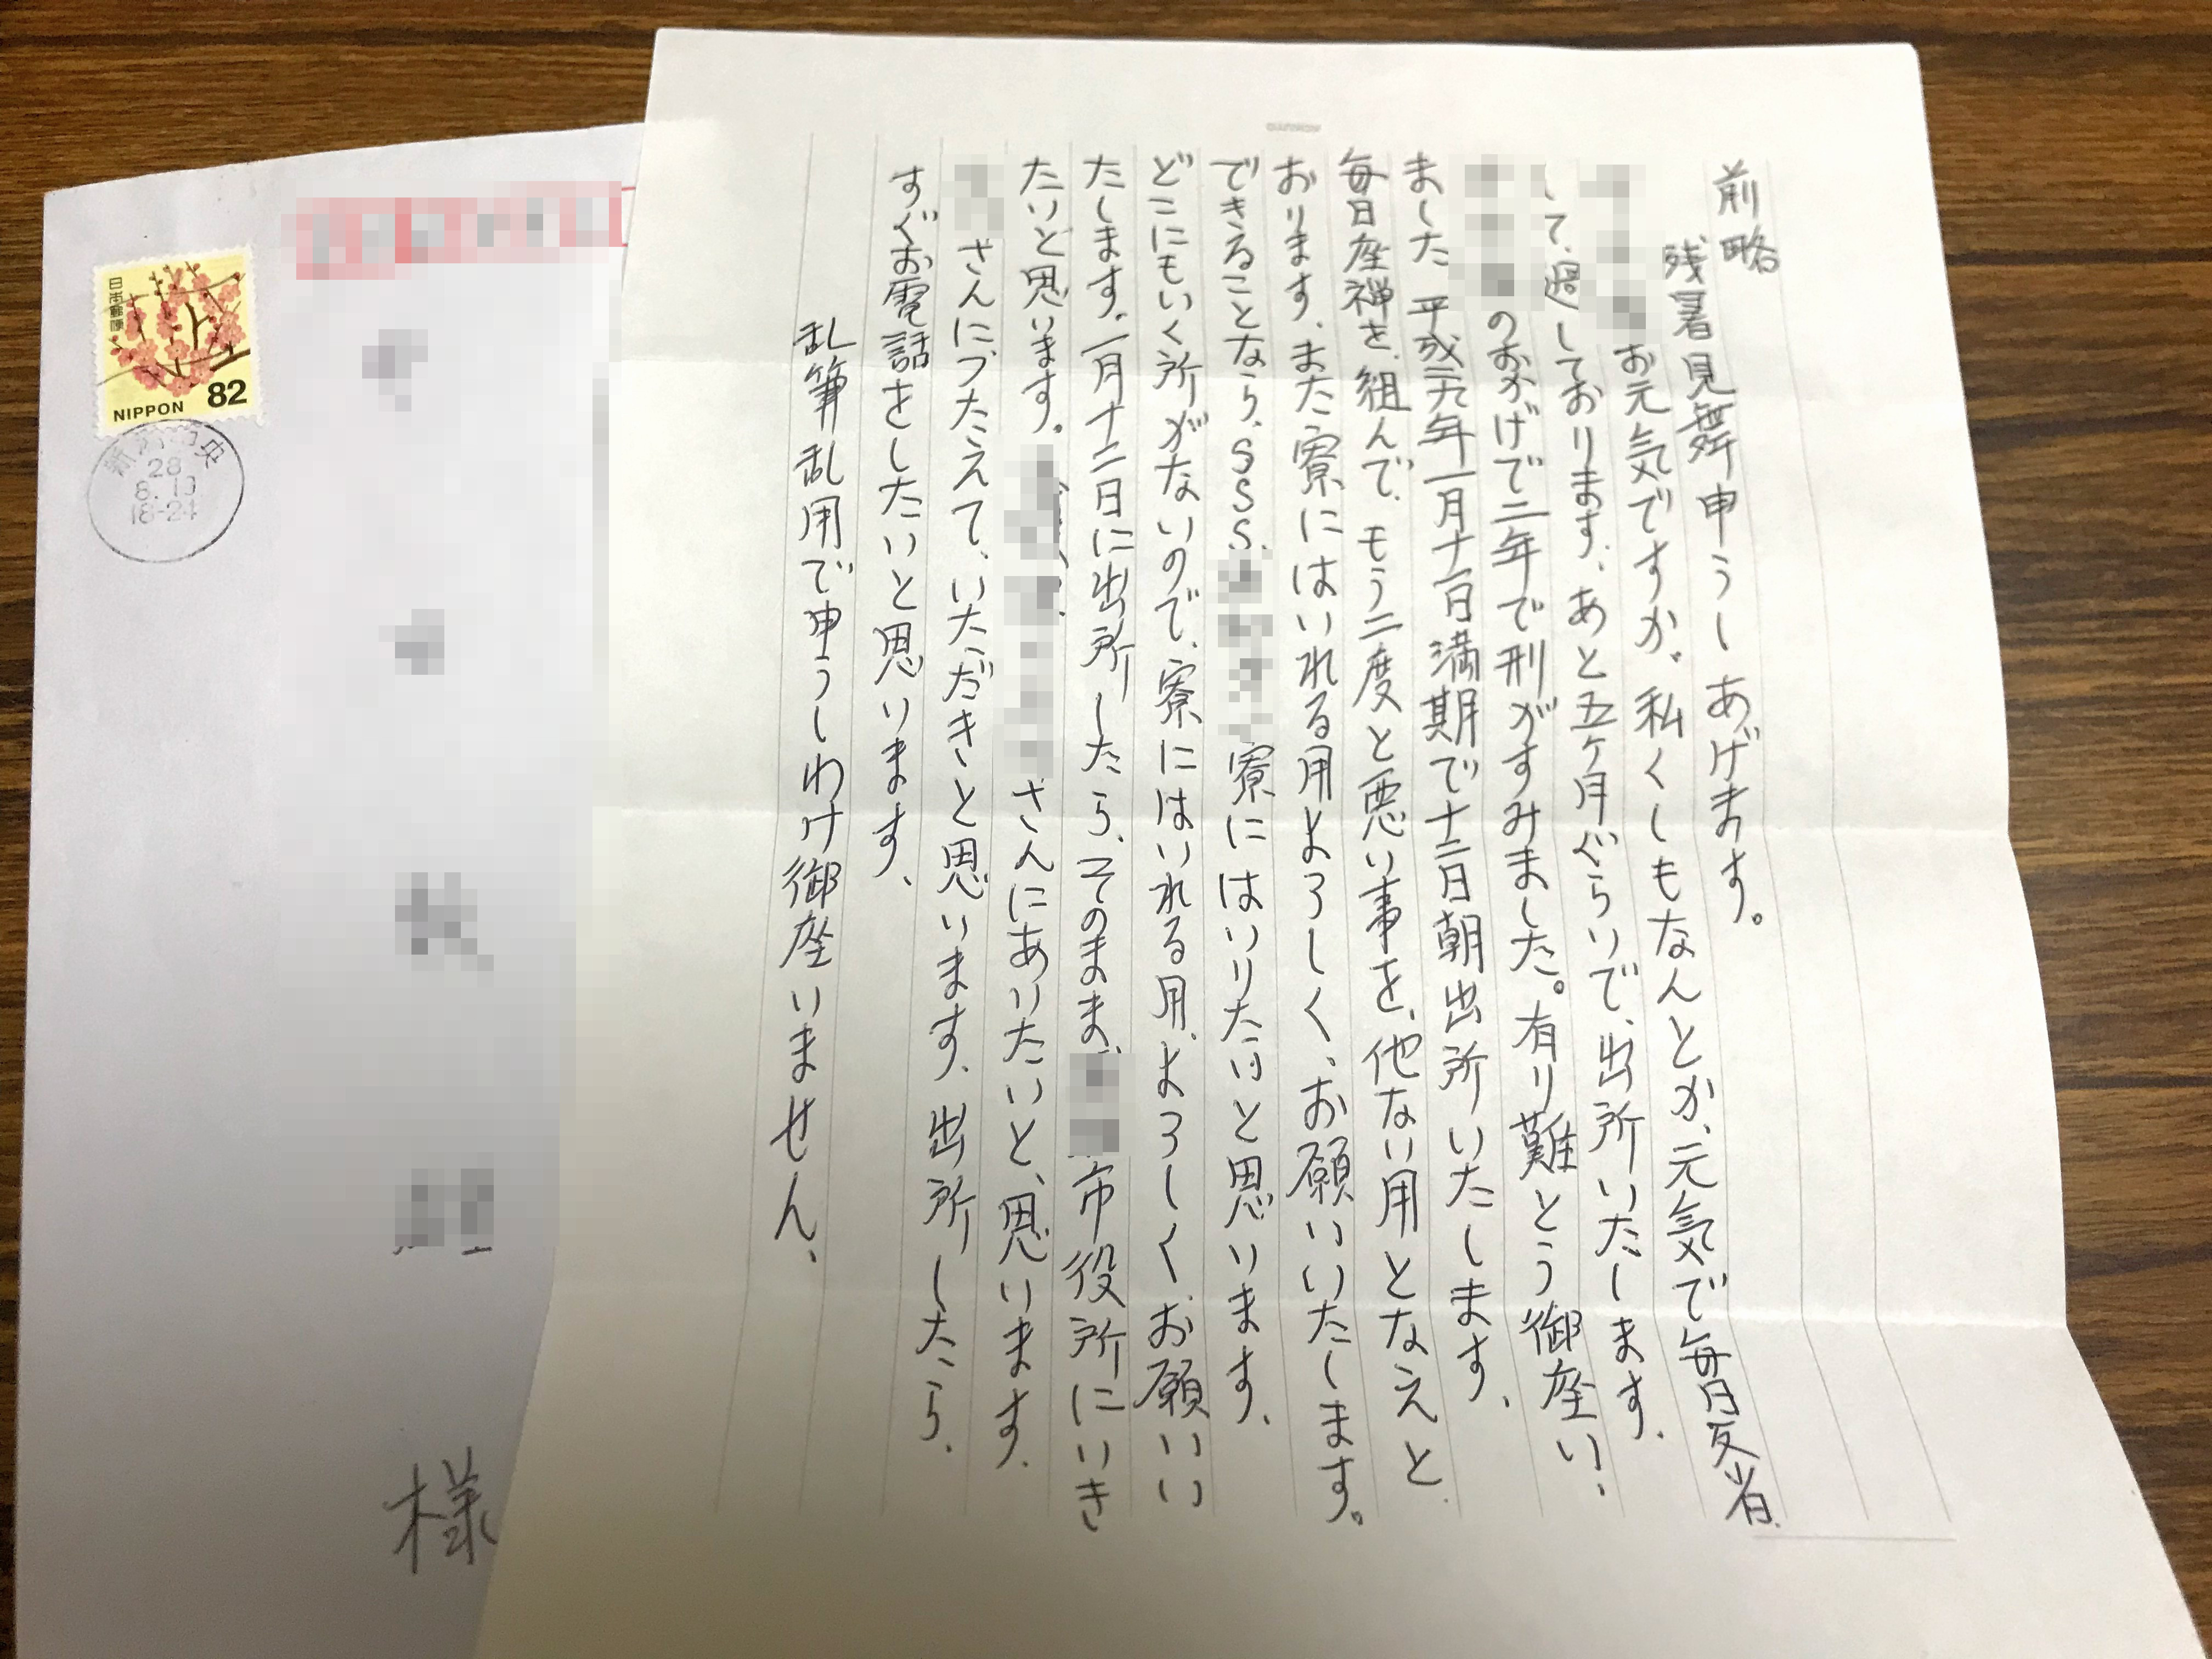 前略
残暑見舞申うしあげます。
お元気ですか、私くしもなんとか、元気で毎日反省
して、過しております、あと五ヶ月ぐらいで、出所いたします、
のおかげで二年で刑がすみました。有り難とう御座い、
ました 平成元年一月十一日満期で十二日朝出所いたします、
毎日座禅を、組んで、もう二度と悪い事を、他ない用となえと、
おります、また寮にはいれる用よろしく、お願いいたします。
できることなら、SSS、寮にはいりたいと思います、
どこにもいく所がないので、寮にはいれる用、よろしく、お願いい
たします。一月十二日に出所したら、そのまま市役所にいき
たいと思います。さんにありたいと、思います、
さんにつたえて、いただきと思います、出所したら、
すぐお電話をしたいと思います、
乱筆乱用で申うしわけ御座いません、
日本郵便
82
NIPPON
28
8.10
18-24
様